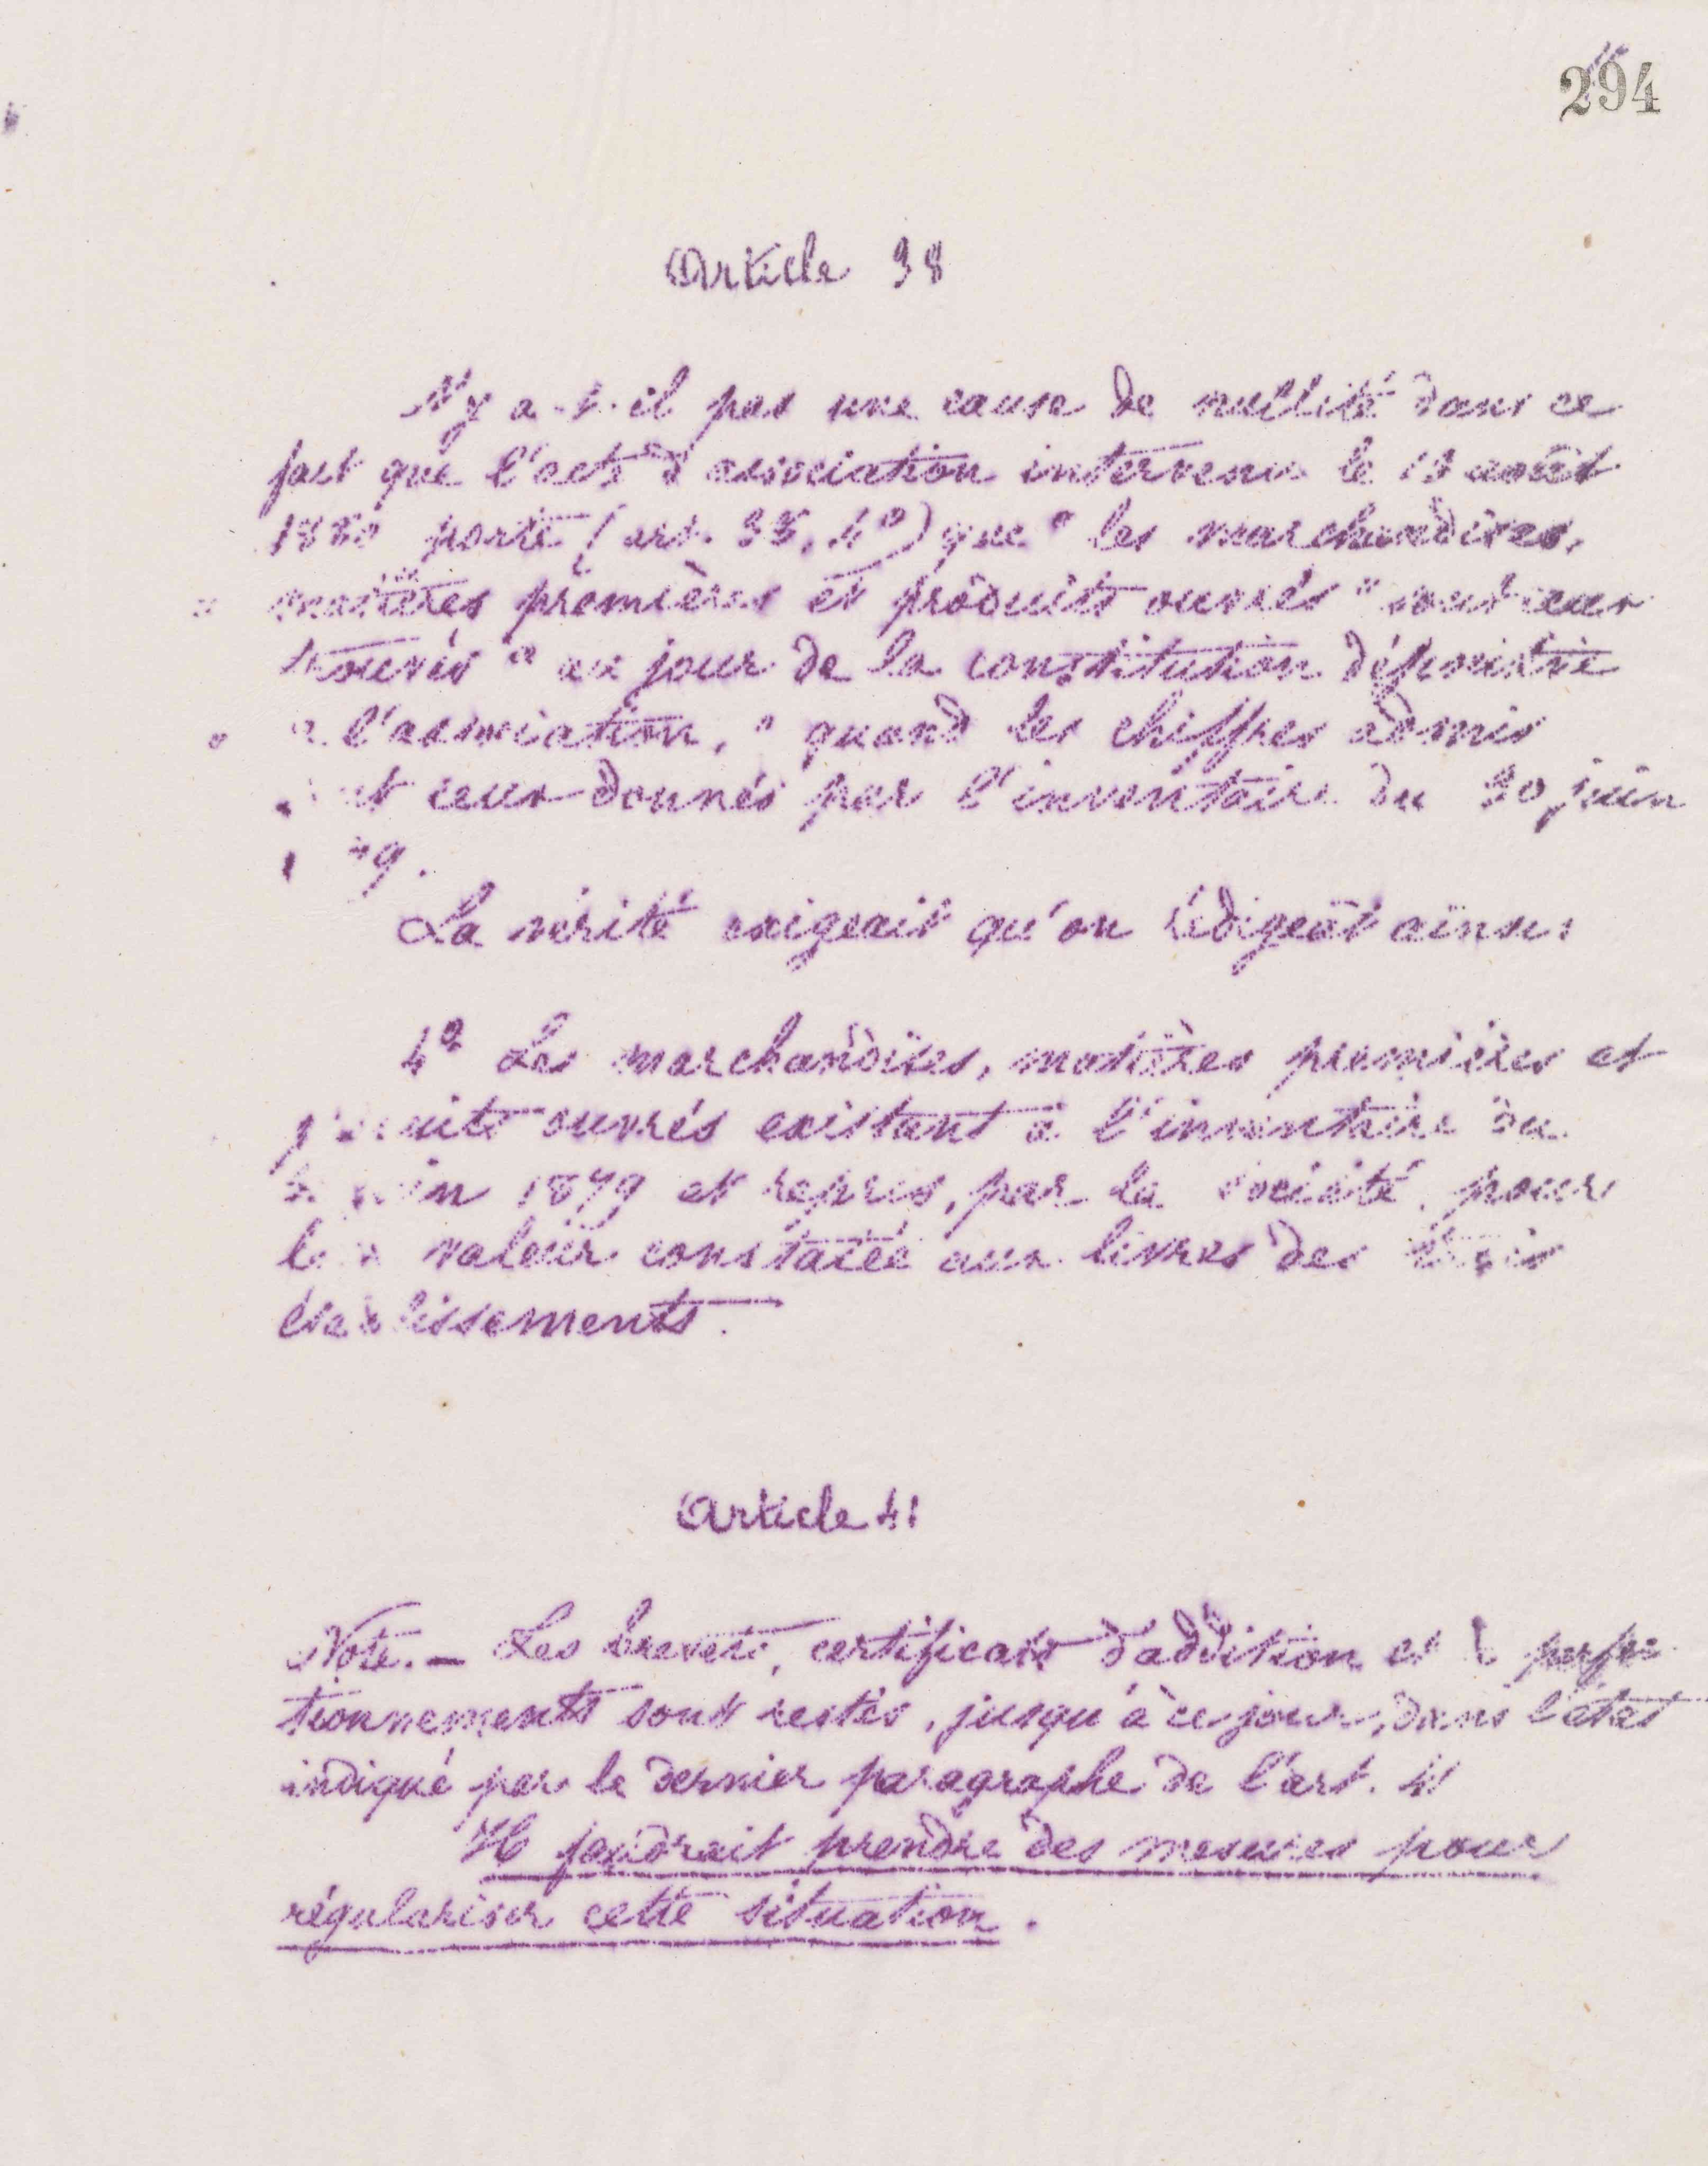 294
Article 38
N'y a-t-il pas une cause de nullité dans ce
fait que l'acte d'association intervenu le 13 août
1880 porte (art. 38, 4°) que " les marchandises,
" matières premières et produits ouvrés " sont ceux
trouvés " au jour de la constitution définitive
" l'association, " quand les chiffres admis
ceux donnés par l'inventaire du 30 juin
La vérité exigeait qu'on rédigeât ainsi
4° Les marchandises, matières premières et
produits ouvrés existant à l'inventaire du
juin 1879 et repris, par la société, pour
leur valeur constatée aux livres des trois
établissements.
Article 41
Note. — Les brevets, certificats d'addition et de perfec
tionnements sont restés, jusqu'à ce jour, dans l'état
indiqué par le dernier paragraphe de l'art. 41
Il faudrait prendre des mesures pour
régulariser cette situation.